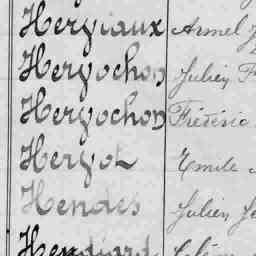 Hergiaux Armel
Hergochon Julien F
Hergochon Frédéric
Hergot Emile
Hendes Julien Jo